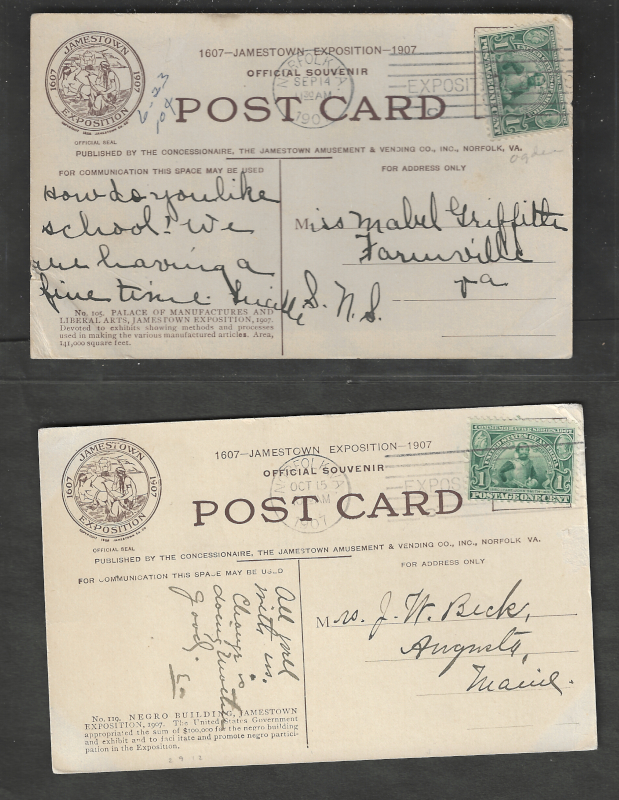 1607—JAMESTOWN EXPOSITION—1907
OFFICIAL SOUVENIR
POST CARD
JAMESTOWN
1607 1907
EXPOSITION
OFFICIAL SEAL
NORFOLK, VA.
SEP 14
AM
190
EXPOSIT
1 1
PUBLISHED BY THE CONCESSIONAIRE, THE JAMESTOWN AMUSEMENT & VENDING CO., INC., NORFOLK, VA.
FOR COMMUNICATION THIS SPACE MAY BE USED
FOR ADDRESS ONLY
How do you like
school? We
are having a
fine time. Lucille
Miss Mabel Griffith
Farmville
Va
S. N. S.
No. 105. PALACE OF MANUFACTURES AND
LIBERAL ARTS, JAMESTOWN EXPOSITION, 1907.
Devoted to exhibits showing methods and processes
used in making the various manufactured articles. Area,
141,000 square feet.
1607—JAMESTOWN EXPOSITION—1907
OFFICIAL SOUVENIR
POST CARD
JAMESTOWN
1607 1907
EXPOSITION
OFFICIAL SEAL
NORFOLK, VA
OCT 15
M
1907
EXPOS
1 1
POSTAGE ONE CENT
PUBLISHED BY THE CONCESSIONAIRE, THE JAMESTOWN AMUSEMENT & VENDING CO., INC., NORFOLK, VA.
FOR COMMUNICATION THIS SPACE MAY BE USED
FOR ADDRESS ONLY
All well
with us.
Change is
doing
good.
Mrs. J. W. Beck,
Augusta,
Maine.
No. 119. NEGRO BUILDING, JAMESTOWN
EXPOSITION, 1907. The United States Government
appropriated the sum of $100,000 for the negro building
and exhibit and to facilitate and promote negro partici-
pation in the Exposition.